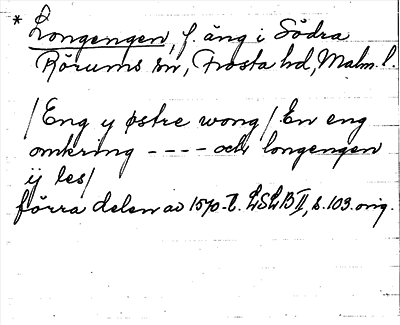 * Longengen, f. äng i Södra
Rörums sn, Frosta hd, Malm. l.
/Eng y østre wong/ En eng
omkring ---- och longengen
ij les/
förra delen av 1570-t. LSLB II, s. 103. orig.